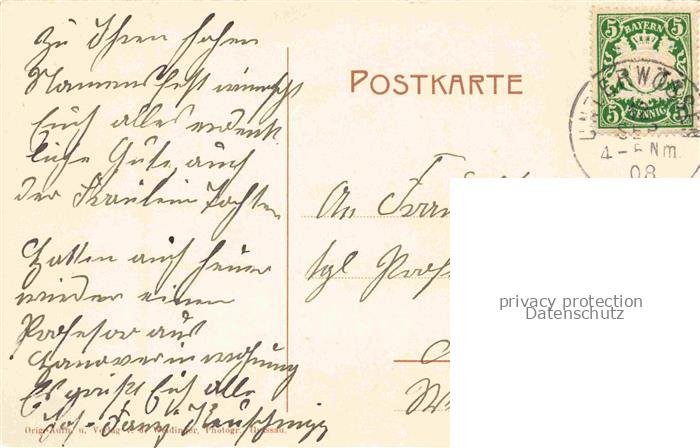 Zu Ihren hohen
Namensfest wünscht
Euch alles erdenk
liche Gute auch
der Fräulein Tochter
Hatten auch heuer
wieder einen
Professor aus
Hanover in wohnung
Es grüßt Euch alle
POSTKARTE
BAYERN
5 5
5 5
PFENNIG
4-5 Nm.
08
An Frau
kgl Profe
privacy protection
Datenschutz
Orig.-Aufn. u. Verlag Photogr.